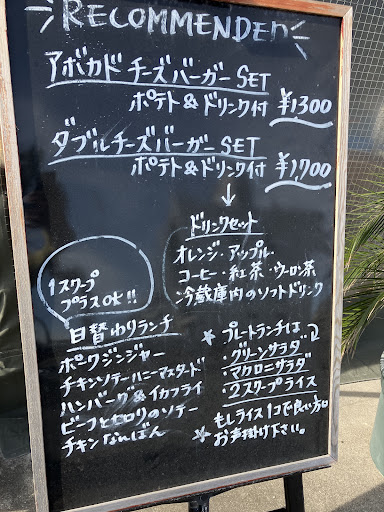 RECOMMENDED
アボカドチーズバーガーSET
ポテト&ドリンク付 ¥1300
ダブルチーズバーガーSET
ポテト&ドリンク付 ¥1,700
↓
ドリンクセット
オレンジ・アップル・
コーヒー・紅茶・ウーロン茶
・冷蔵庫内のソフトドリンク
1スクープ
プラスOK!!
日替わりランチ
ポークジンジャー
チキンソテーハニーマスタード
ハンバーグ&イカフライ
ビーフとセロリのソテー
チキンなんばん
★プレートランチは
・グリーンサラダ
・マカロニサラダ
・2スクープライス
もしライス1コで良い方は
★お声掛け下さい。